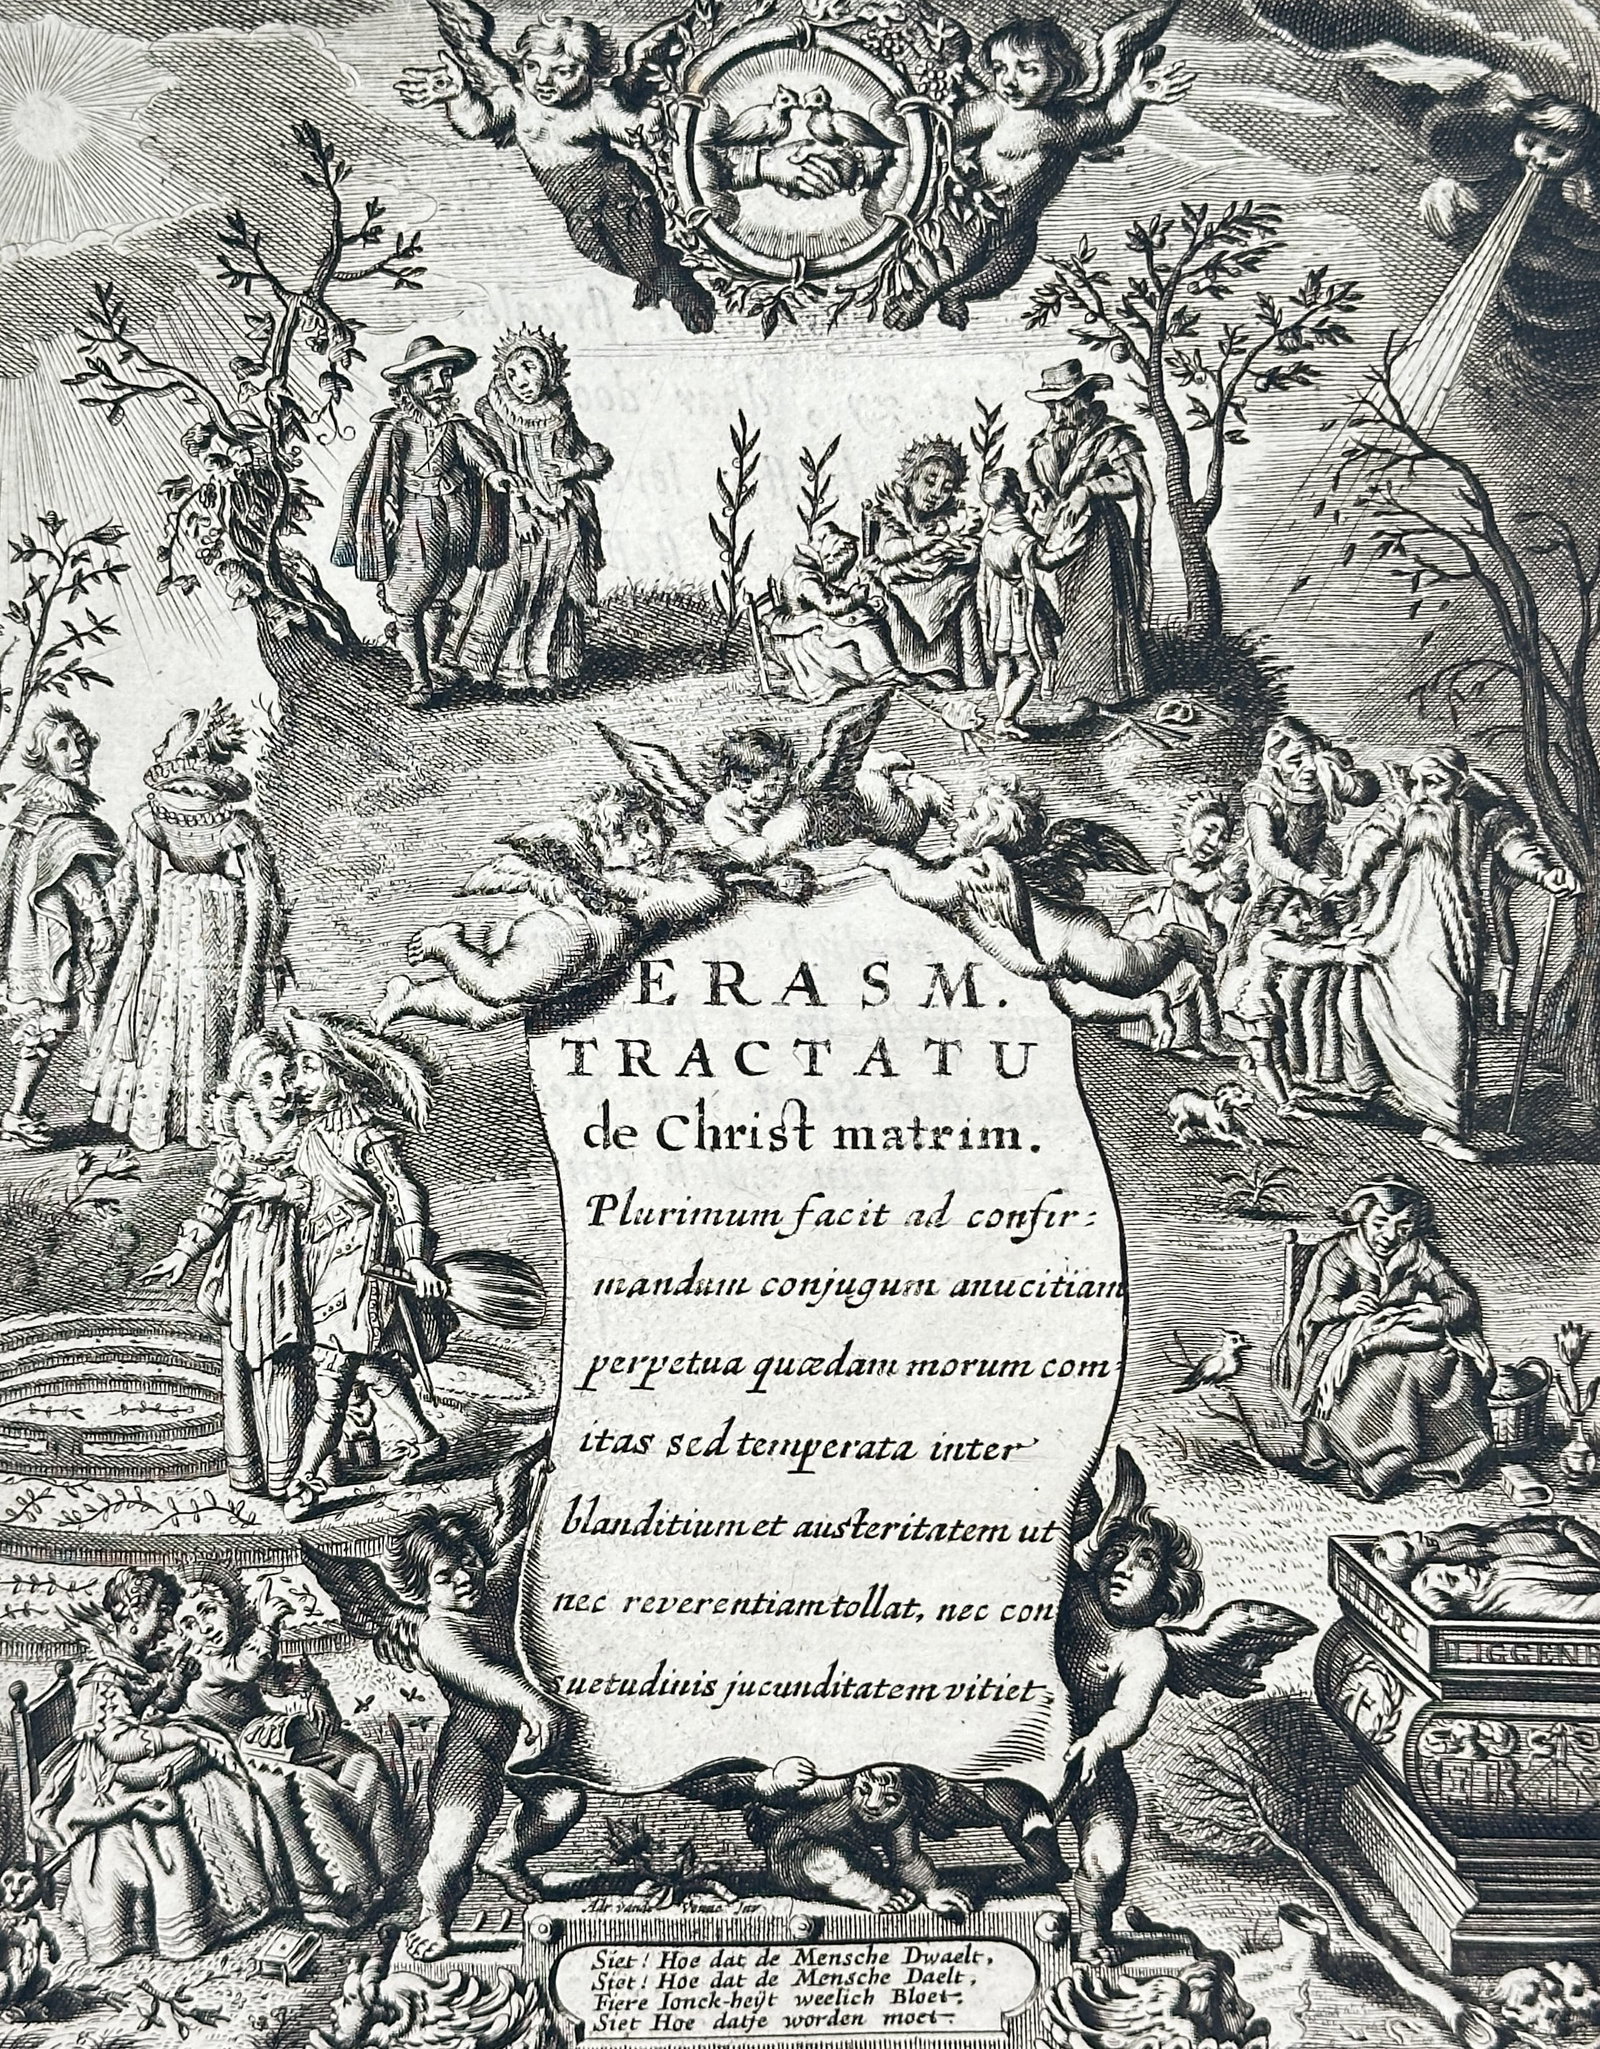 ERASM.
TRACTATU
de Christ matrim.
Plurimum facit ad confir:
mandam conjugum amicitiam
perpetua quædam morum com:
itas sed temperata inter
blanditium et austeritatem ut
nec reverentiam tollat, nec con
suetudinis jucunditatem vitiet;
HIER
LIGGEN
Adr vande Venne Inv
Siet! Hoe dat de Mensche Dwaelt,
Siet! Hoe dat de Mensche Daelt,
Fiere Ionck-heÿt weelich Bloet;
Siet Hoe datje worden moet: